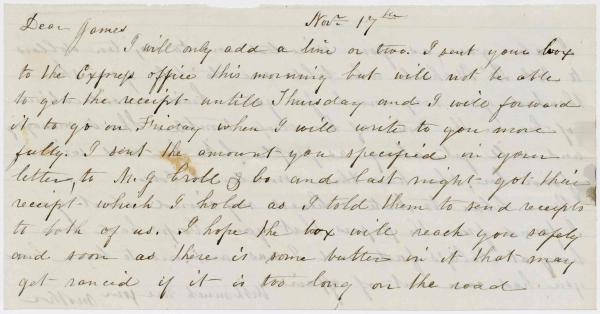 Dear James Nov 17th
I will only add a line or two. I sent your box
to the Express office this morning but will not be able
to get the receipt untill Thursday and I will forward
it to go on Friday when I will write to you more
fully. I sent the amount you specified in your
letter, to M. G. Croll & Co and last night got their
receipt which I hold as I told them to send receipts
to both of us. I hope the box will reach you safely
and soon as there is some butter in it that may
get rancid if it is too long on the road